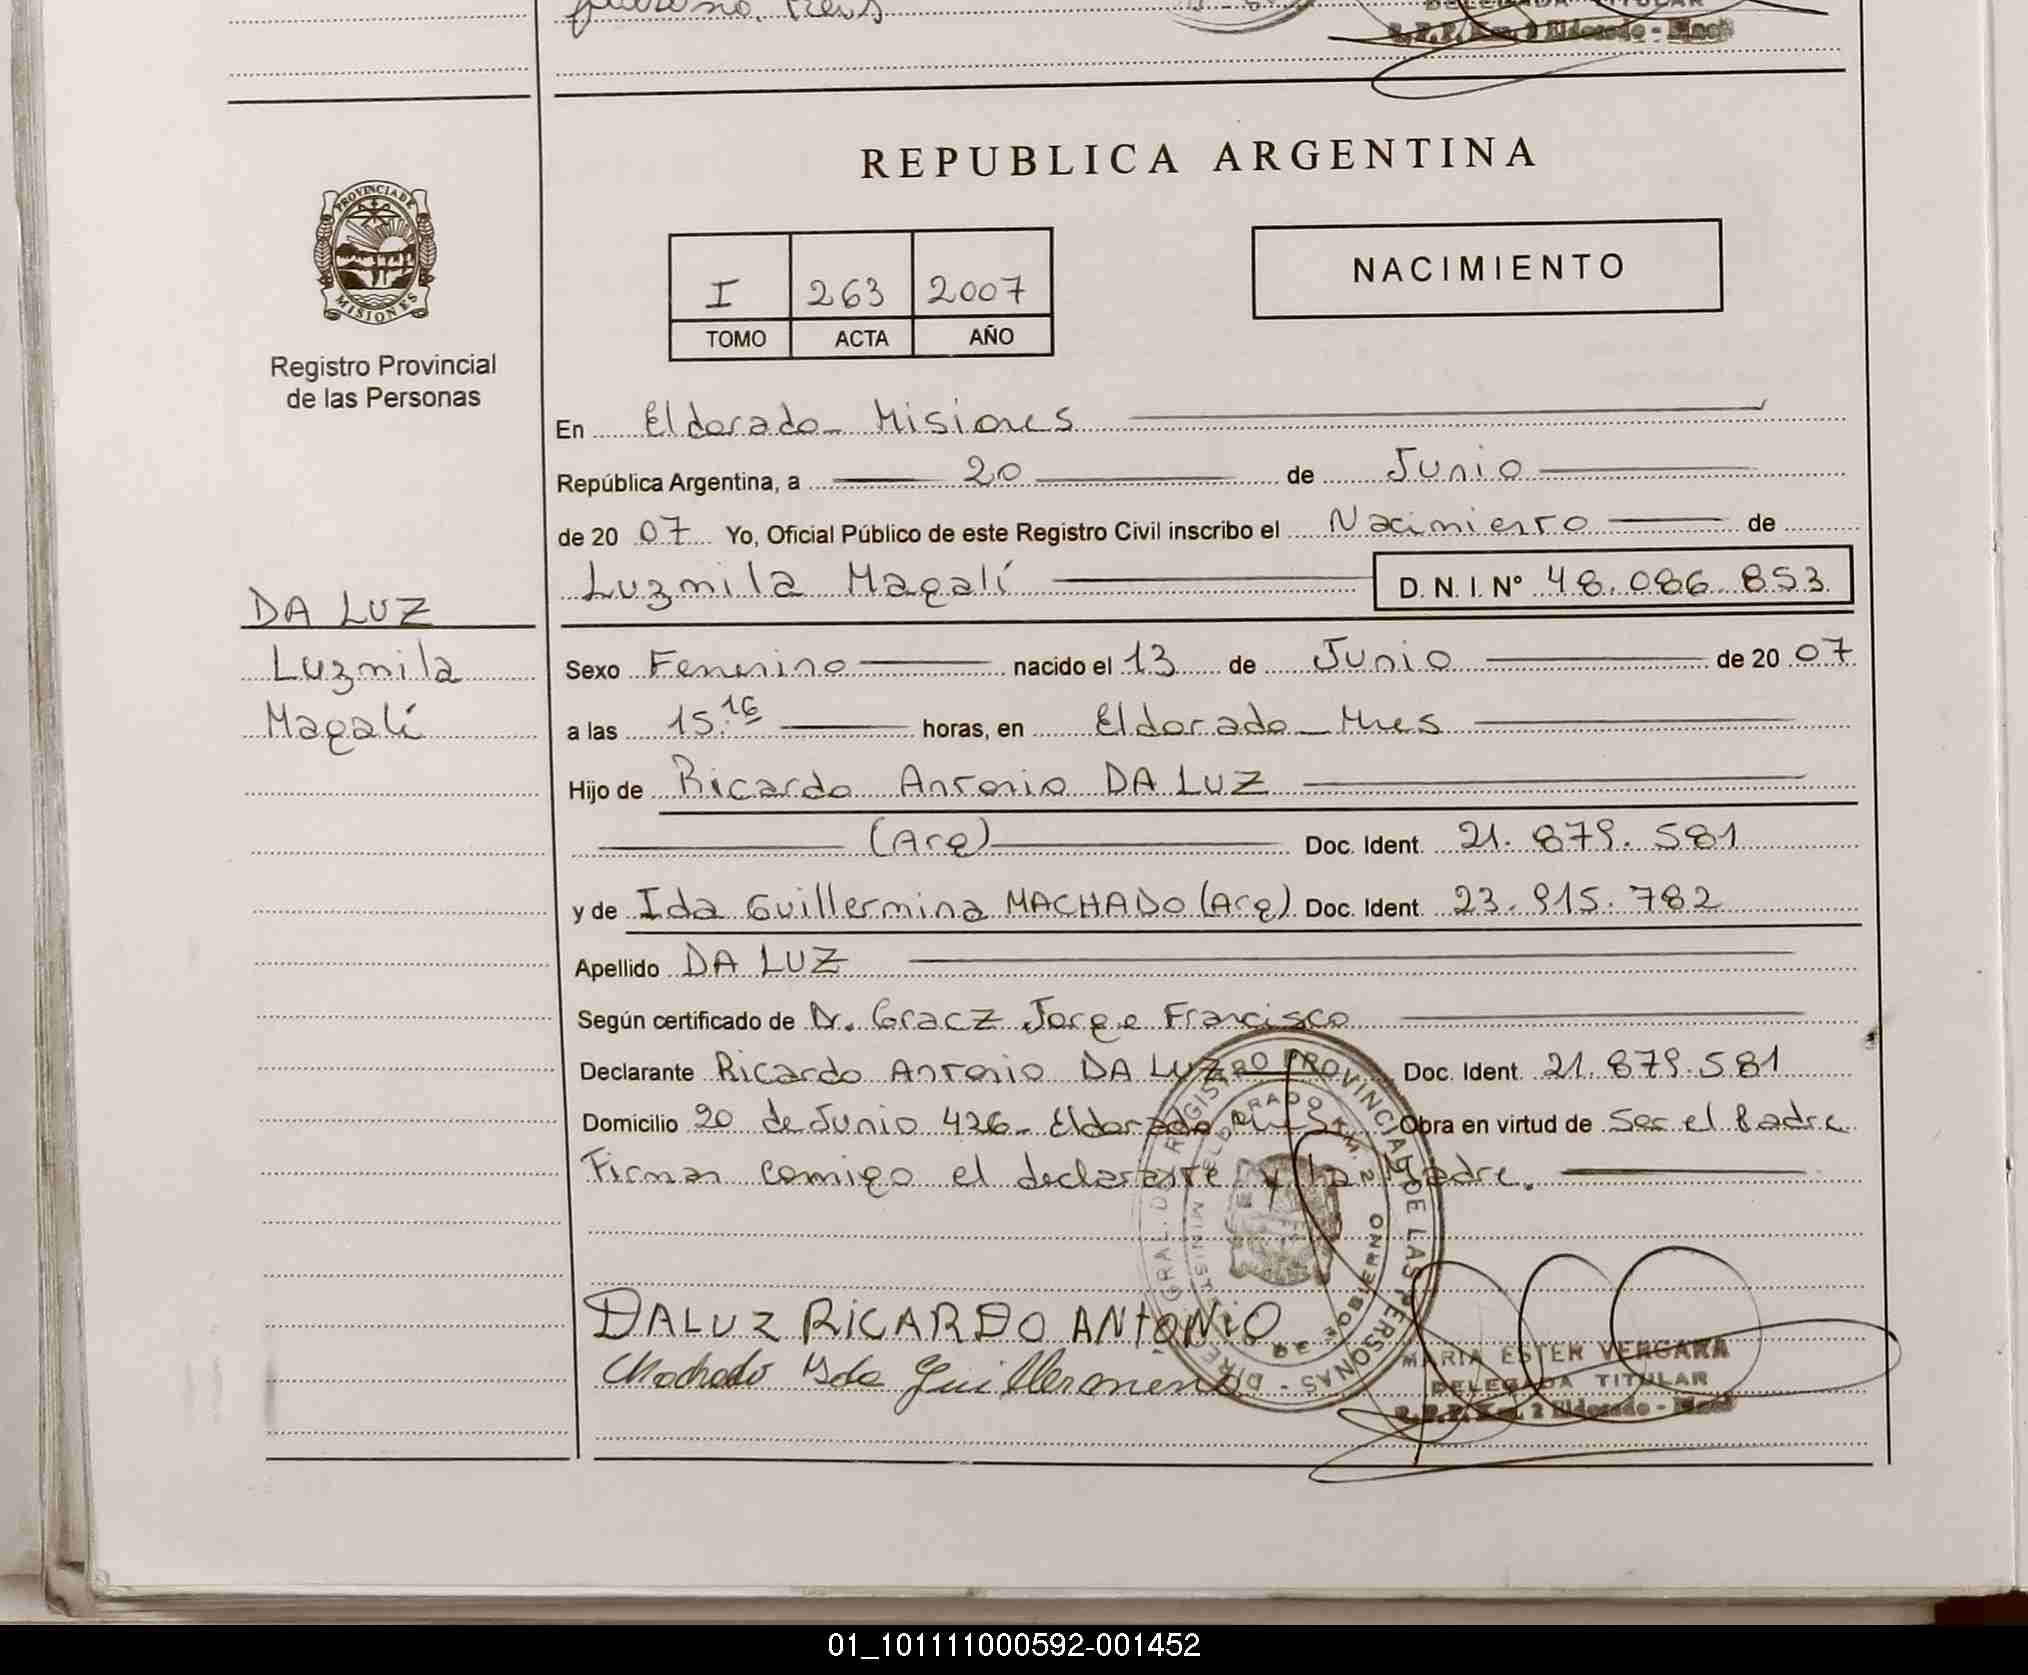 DELEGADA TITULAR
R.P.P. Km. 2 Eldorado - Mnes
REPUBLICA ARGENTINA
PROVINCIA DE MISIONES
Registro Provincial
de las Personas
I 263 2007
TOMO ACTA AÑO
NACIMIENTO
En Eldorado - Misiones
República Argentina, a 20 de Junio
de 20 07 Yo, Oficial Público de este Registro Civil inscribo el Nacimiento de
Luzmila Magalí D. N. I. N° 48.086.853
DA LUZ
Luzmila
Magalí
Sexo Femenino nacido el 13 de Junio de 20 07
a las 15.16 horas, en Eldorado - Mnes
Hijo de Ricardo Antonio DA LUZ
(Arg) Doc. Ident. 21.879.581
y de Ida Guillermina MACHADO (Arg) Doc. Ident. 23.915.782
Apellido DA LUZ
Según certificado de Dr. Gracz Jorge Francisco
Declarante Ricardo Antonio DA LUZ Doc. Ident. 21.879.581
Domicilio 20 de Junio 426 - Eldorado Obra en virtud de Ser el Padre
Firman comigo el declarante y la Madre.
DIREC GRAL. DE REGISTRO PROVINCIAL DE LAS PERSONAS
ELDORADO KM. 2
MINISTE DE GOBIERNO
DALUZ RICARDO ANTONIO
Machado Yda Guillermina
MARIA ESTER VERGARA
DELEGADA TITULAR
R.P.P. Km. 2 Eldorado - Mnes
01_101111000592-001452